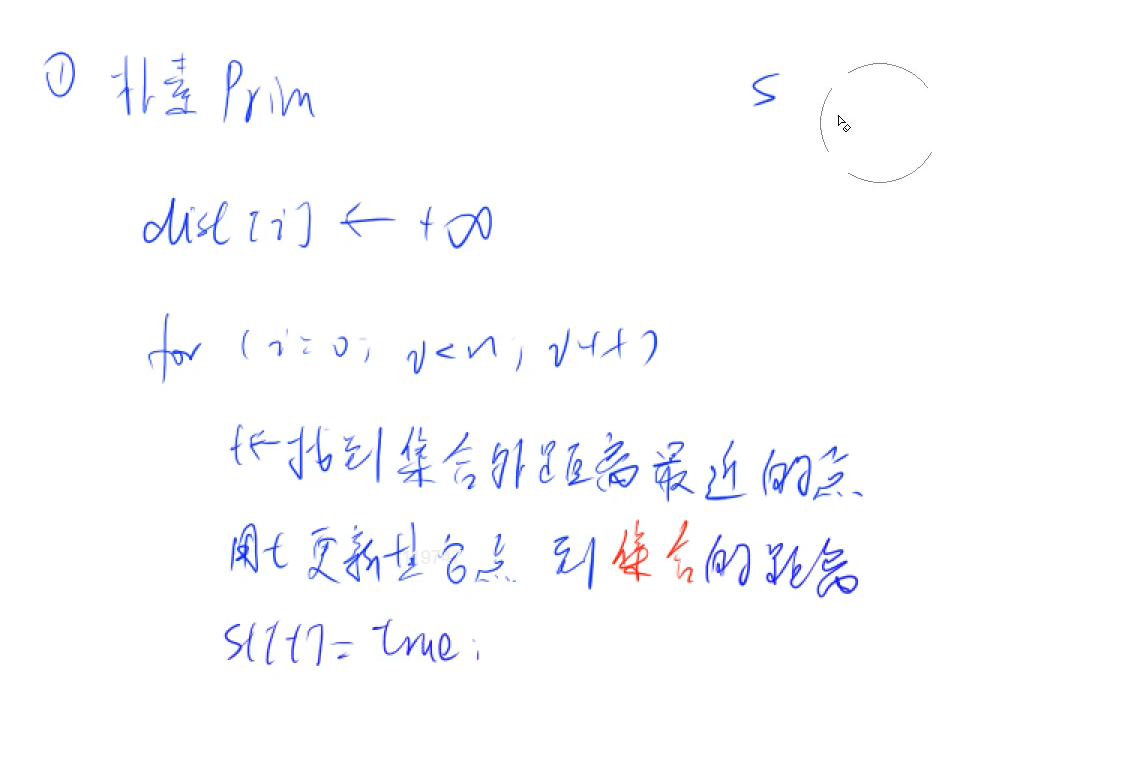 ① 朴素Prim
S
dist[i] ← +∞
for (i=0; i<n; i++)
t←找到集合外距离最近的点
用t更新其它点 到集合的距离
st[t]=true;